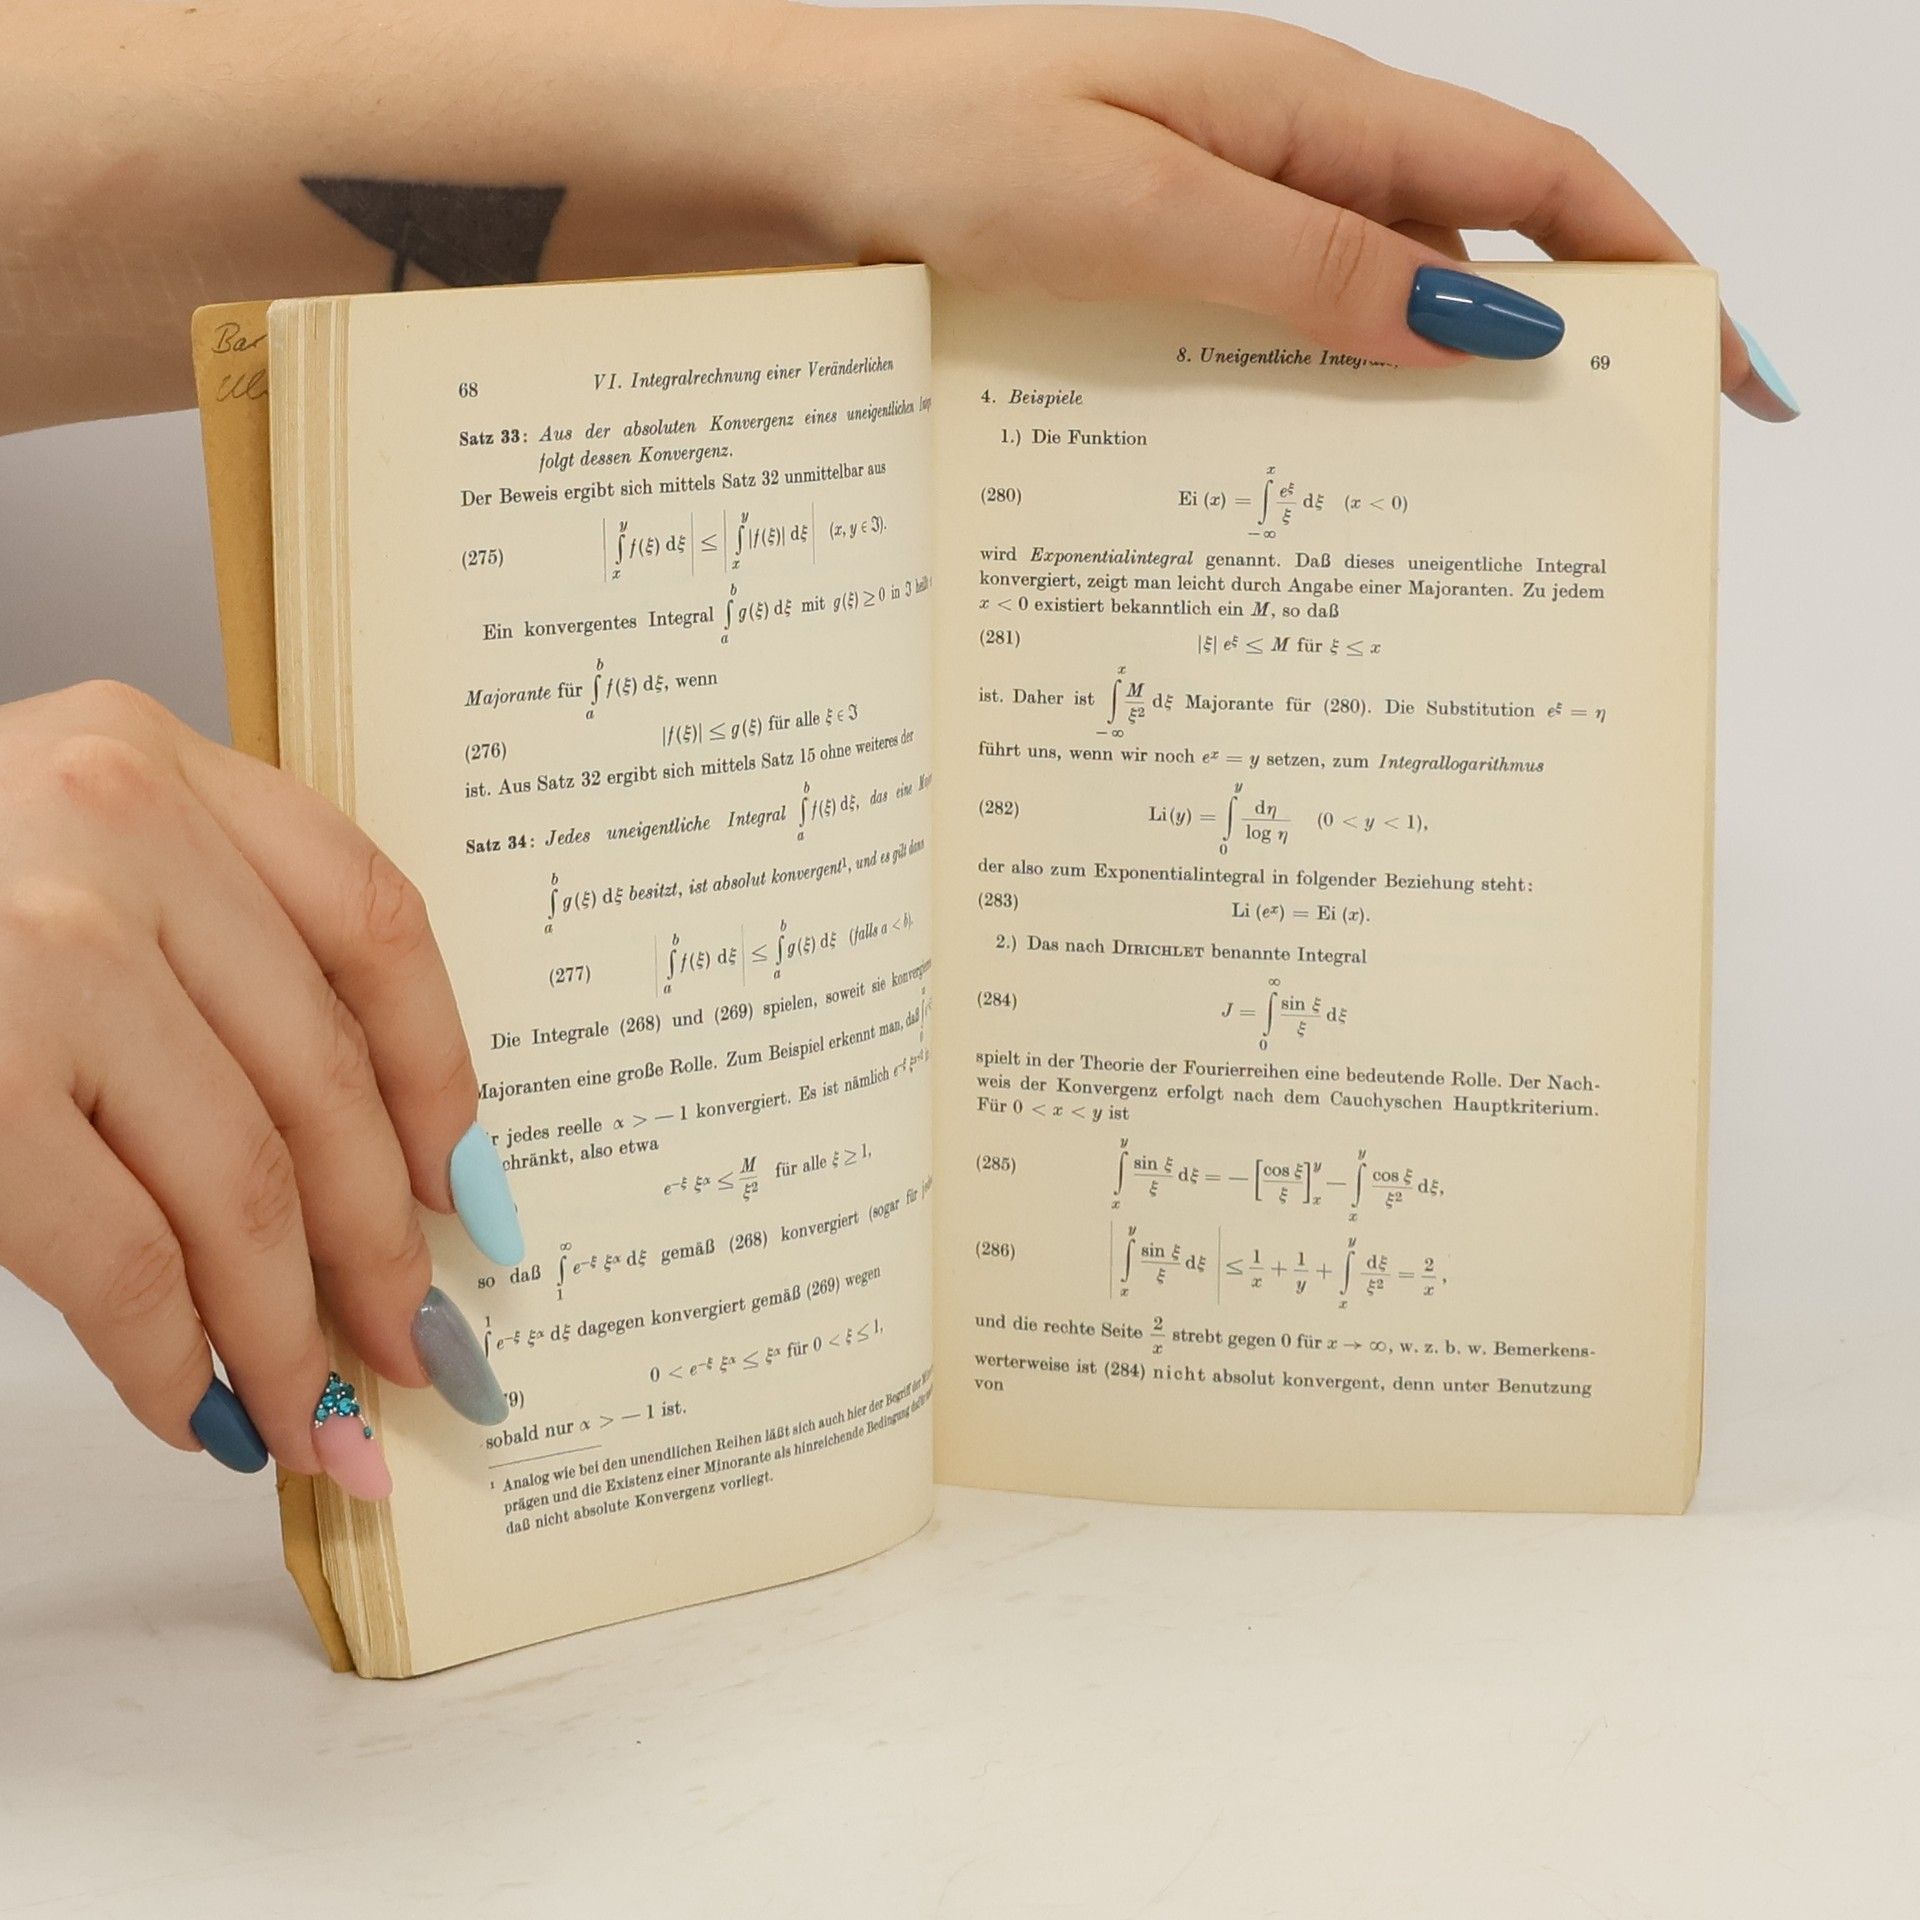 68 VI. Integralrechnung einer Veränderlichen
Satz 33: Aus der absoluten Konvergenz eines uneigentlichen
folgt dessen Konvergenz.
Der Beweis ergibt sich mittels Satz 32 unmittelbar aus
(275) |∫_x^y f(ξ) dξ| ≤ |∫_x^y |f(ξ)| dξ| (x, y ∈ ℑ).
Ein konvergentes Integral ∫_a^b g(ξ) dξ mit g(ξ) ≥ 0 in ℑ
Majorante für ∫_a^b f(ξ) dξ, wenn
(276) |f(ξ)| ≤ g(ξ) für alle ξ ∈ ℑ
ist. Aus Satz 32 ergibt sich mittels Satz 15 ohne weiteres der
Satz 34: Jedes uneigentliche Integral ∫_a^b f(ξ) dξ, das eine
∫_a^b g(ξ) dξ besitzt, ist absolut konvergent¹, und es gilt dann
(277) |∫_a^b f(ξ) dξ| ≤ ∫_a^b g(ξ) dξ (falls a < b).
Die Integrale (268) und (269) spielen, soweit sie
Majoranten eine große Rolle. Zum Beispiel erkennt man, daß
jedes reelle α > — 1 konvergiert. Es ist nämlich
chränkt, also etwa
e^{-ξ} ξ^α ≤ M/ξ² für alle ξ ≥ 1,
so daß ∫_1^∞ e^{-ξ} ξ^α dξ gemäß (268) konvergiert (sogar für
∫^1 e^{-ξ} ξ^α dξ dagegen konvergiert gemäß (269) wegen
9) 0 < e^{-ξ} ξ^α ≤ ξ^α für 0 < ξ ≤ 1,
sobald nur α > — 1 ist.
¹ Analog wie bei den unendlichen Reihen läßt sich auch hier der Begriff der
prägen und die Existenz einer Minorante als hinreichende Bedingung
daß nicht absolute Konvergenz vorliegt.
8. Uneigentliche 69
4. Beispiele
1.) Die Funktion
(280) Ei (x) = ∫_{-∞}^x e^ξ/ξ dξ (x < 0)
wird Exponentialintegral genannt. Daß dieses uneigentliche Integral
konvergiert, zeigt man leicht durch Angabe einer Majoranten. Zu jedem
x < 0 existiert bekanntlich ein M, so daß
(281) |ξ| e^ξ ≤ M für ξ ≤ x
ist. Daher ist ∫_{-∞}^x M/ξ² dξ Majorante für (280). Die Substitution e^ξ = η
führt uns, wenn wir noch e^x = y setzen, zum Integrallogarithmus
(282) Li(y) = ∫_0^y dη/log η (0 < y < 1),
der also zum Exponentialintegral in folgender Beziehung steht:
(283) Li (e^x) = Ei (x).
2.) Das nach DIRICHLET benannte Integral
(284) J = ∫_0^∞ sin ξ/ξ dξ
spielt in der Theorie der Fourierreihen eine bedeutende Rolle. Der Nach-
weis der Konvergenz erfolgt nach dem Cauchyschen Hauptkriterium.
Für 0 < x < y ist
(285) ∫_x^y sin ξ/ξ dξ = — [cos ξ/ξ]_x^y — ∫_x^y cos ξ/ξ² dξ,
(286) |∫_x^y sin ξ/ξ dξ| ≤ 1/x + 1/y + ∫_x^y dξ/ξ² = 2/x,
und die rechte Seite 2/x strebt gegen 0 für x → ∞, w. z. b. w. Bemerkens-
werterweise ist (284) nicht absolut konvergent, denn unter Benutzung
von